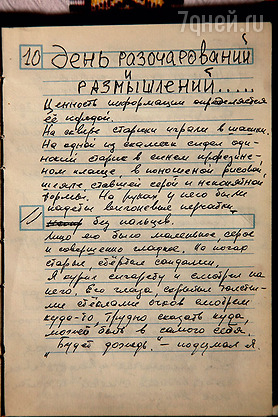 7дней.ru
10 День разочарований
и
размышлений.....
Ценность информации определяется
её породой.
На сквере старики играли в шашки.
На одной из скамеек сидел оди-
нокий старик в синем прорезине-
ном плаще, в поношеной рисовой
шляпе ставшей серой и непонятной
формы. На руках у него были
надеты вигоневые перчатки
11 без пальцев.
Лицо его было маленькое серое
и совершенно гладкое. На ногах
старые стёртые сандали.
Я курил сигарету и смотрел на
него. Его глаза скрывал толсты-
ми стёклами очков смотрел
куда-то, трудно сказать куда,
может быть в самого себя.
"Будет дождь." – подумал я.